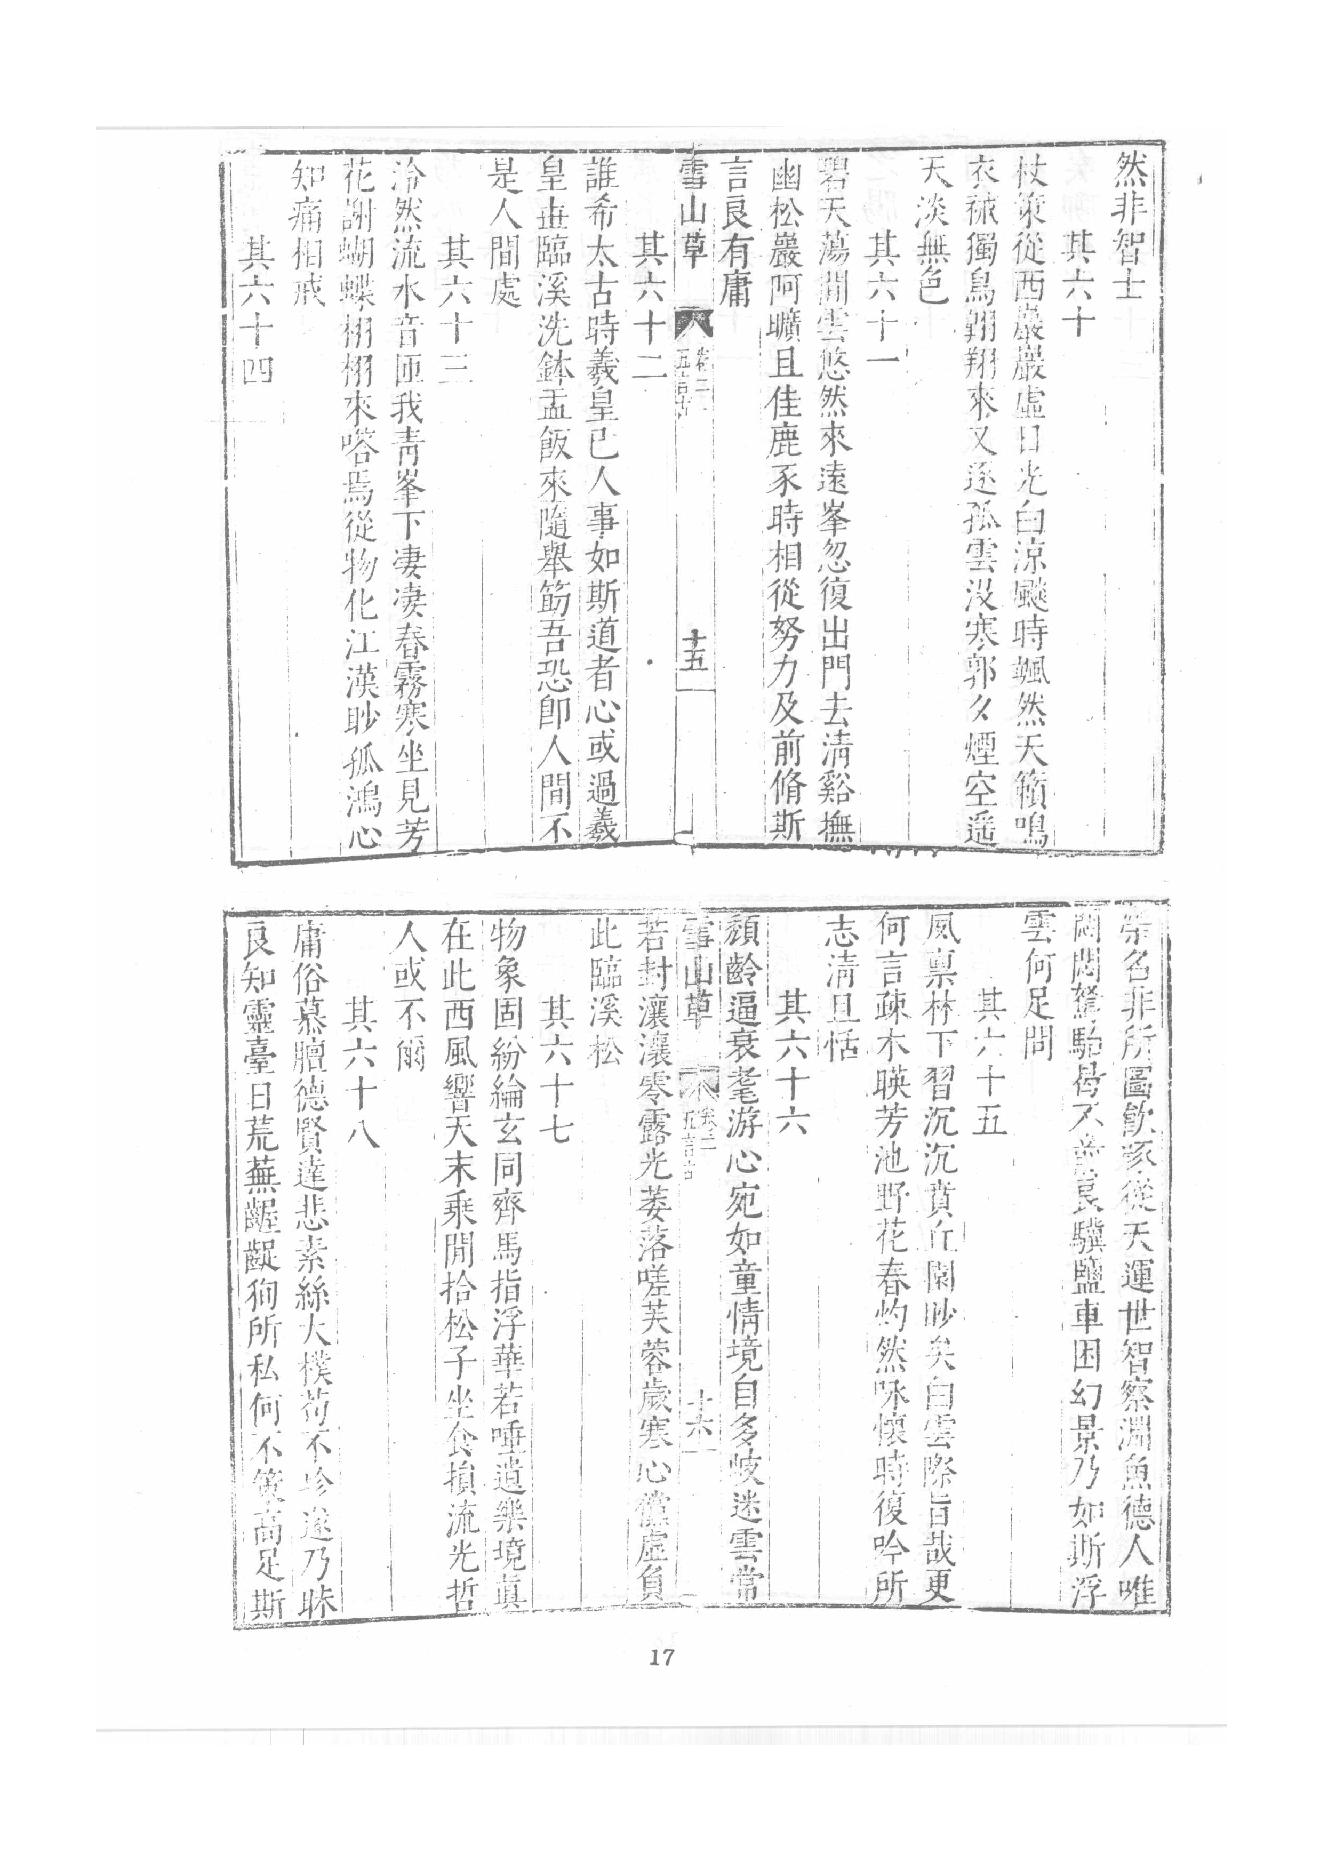 然非智士
其六十
杖策從西巖巖虛日光白涼颷時颯然天籟鳴
衣裓獨鳥翺翔來又逐孤雲沒寒郭夕煙空遥
天淡無色
其六十一
碧天蕩閒雲悠然來遠峯忽復出門去清谿撫
幽松巖阿曠且佳鹿豕時相從努力及前脩斯
言良有庸
雪山草
卷二
五言古
十五
其六十二
誰希太古時羲皇已人事如斯道者心或過羲
皇世臨溪洗鉢盂飯來隨舉筯吾恐卽人間不
是人間處
其六十三
泠然流水音匝我靑峯下凄凄春霧寒坐見芳
花謝蝴蝶栩栩來嗒焉從物化江漢眇孤鴻心
知痛相戒
其六十四
榮名非所圖飮啄從天運世智察淵魚德人唯
悶悶駑駘骨不 哀驥鹽車困幻景乃如斯浮
雲何足問
其六十五
風稟林下習沉沉賁丘園眇矣白雲際旨哉更
何言疎木暎芳池野花春灼然咏懷時復吟所
志清且恬
其六十六
頹齡逼衰耄游心宛如童情境自多岐迷雲常
若封瀼瀼零露光萎落嗟芙蓉歲寒心儻虛負
此臨溪松
雪山草
卷二
五言古
十六
其六十七
物象固紛綸玄同齊馬指浮華若唾遺樂境眞
在此西風響天末乘閒拾松子坐食損流光哲
人或不爾
其六十八
庸俗慕膻德賢達悲素絲大樸苟不珍遂乃昧
良知靈臺日荒蕪齷齪狥所私何不策高足斯
17